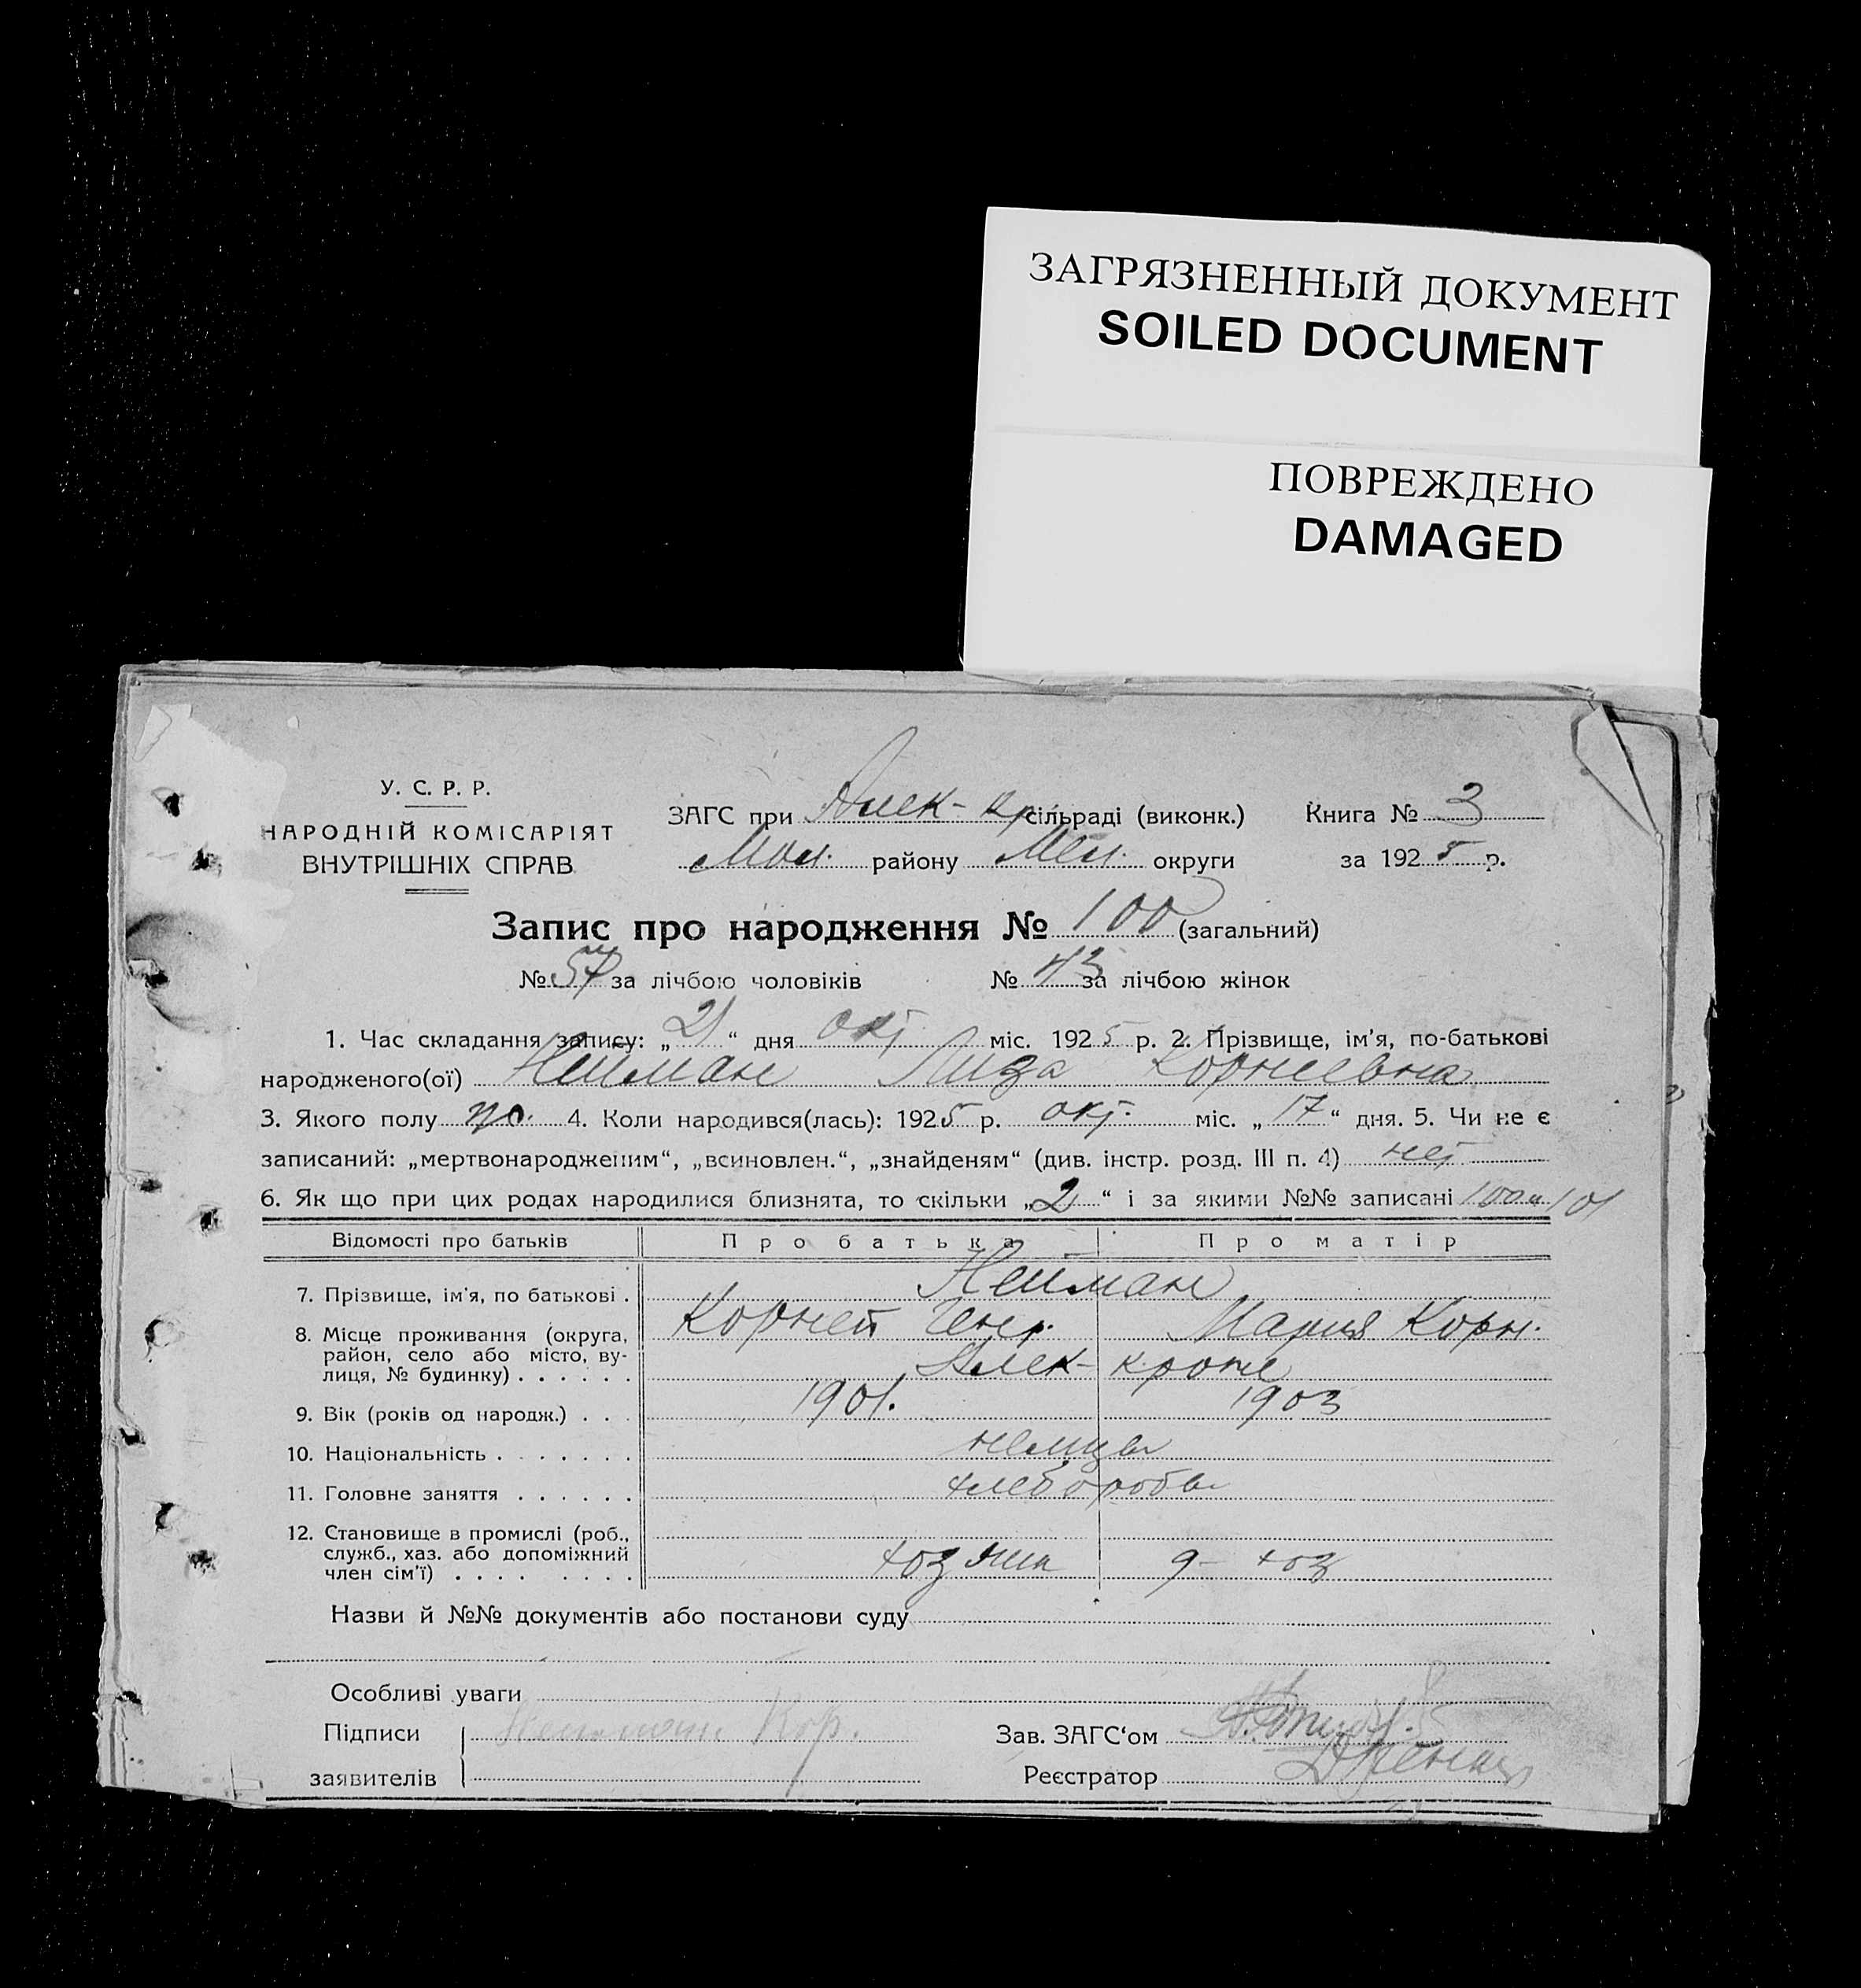 ЗАГРЯЗНЕННЫЙ ДОКУМЕНТ
SOILED DOCUMENT
ПОВРЕЖДЕНО
DAMAGED
У. С. Р. Р.
НАРОДНІЙ КОМІСАРІЯТ
ВНУТРІШНІХ СПРАВ
ЗАГС при Алек-кр сільраді (виконк.) Книга № 3
Мол. району Мел. округи за 1925 р.
Запис про народження № 100 (загальний)
№ 57 за лічбою чоловіків № 43 за лічбою жінок
1. Час складання запису: „21“ дня окт міс. 1925 р. 2. Прізвище, ім’я, по-батькові
народженого(ої) Нейман Лиза Корнеевна
3. Якого полу 4. Коли народився(лась): 1925 р. окт. міс. „17“ дня. 5. Чи не є
записаний: „мертвонародженим“, „всиновлен.“, „знайденям“ (див. інстр. розд. III п. 4) нет
6. Як що при цих родах народилися близнята, то скільки „2“ і за якими №№ записані 100 и 101
Відомості про батьків Про батька Про матір
7. Прізвище, ім’я, по батькові . Нейман
Корней Генр. Мария Корн.
8. Місце проживання (округа,
район, село або місто, ву-
лиця, № будинку) . . . . . . Алек-кроне
9. Вік (років од народж.) . . . 1901. 1903
10. Національність . . . . . . . немцы
11. Головне заняття . . . . . . хлеборобы
12. Становище в промислі (роб.,
служб., хаз. або допоміжний
член сім’ї) . . . . . . . . хозяин ч- хоз
Назви й №№ документів або постанови суду
Особливі уваги
Підписи Кор. Зав. ЗАГС‘ом
заявителів Реєстратор